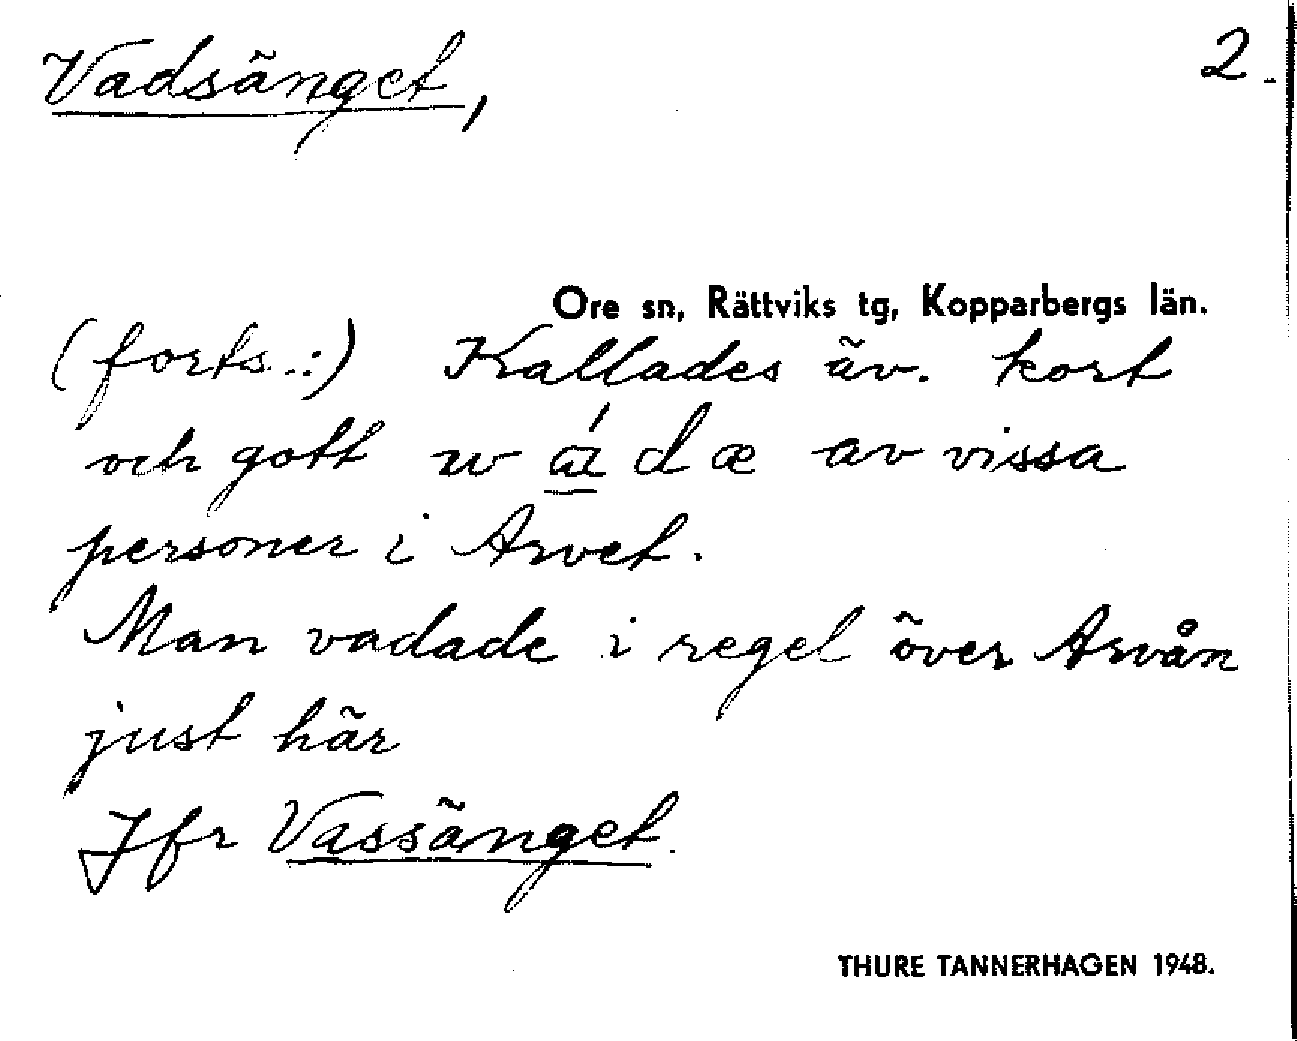 Vadsänget,
2.
Ore sn, Rättviks tg, Kopparbergs län.
(forts.:) Kallades äv. kort
och gott av vissa
personer i Arvet.
Man vadade i regel över Arvån
just här
Jfr Vassänget.
THURE TANNERHAGEN 1948.